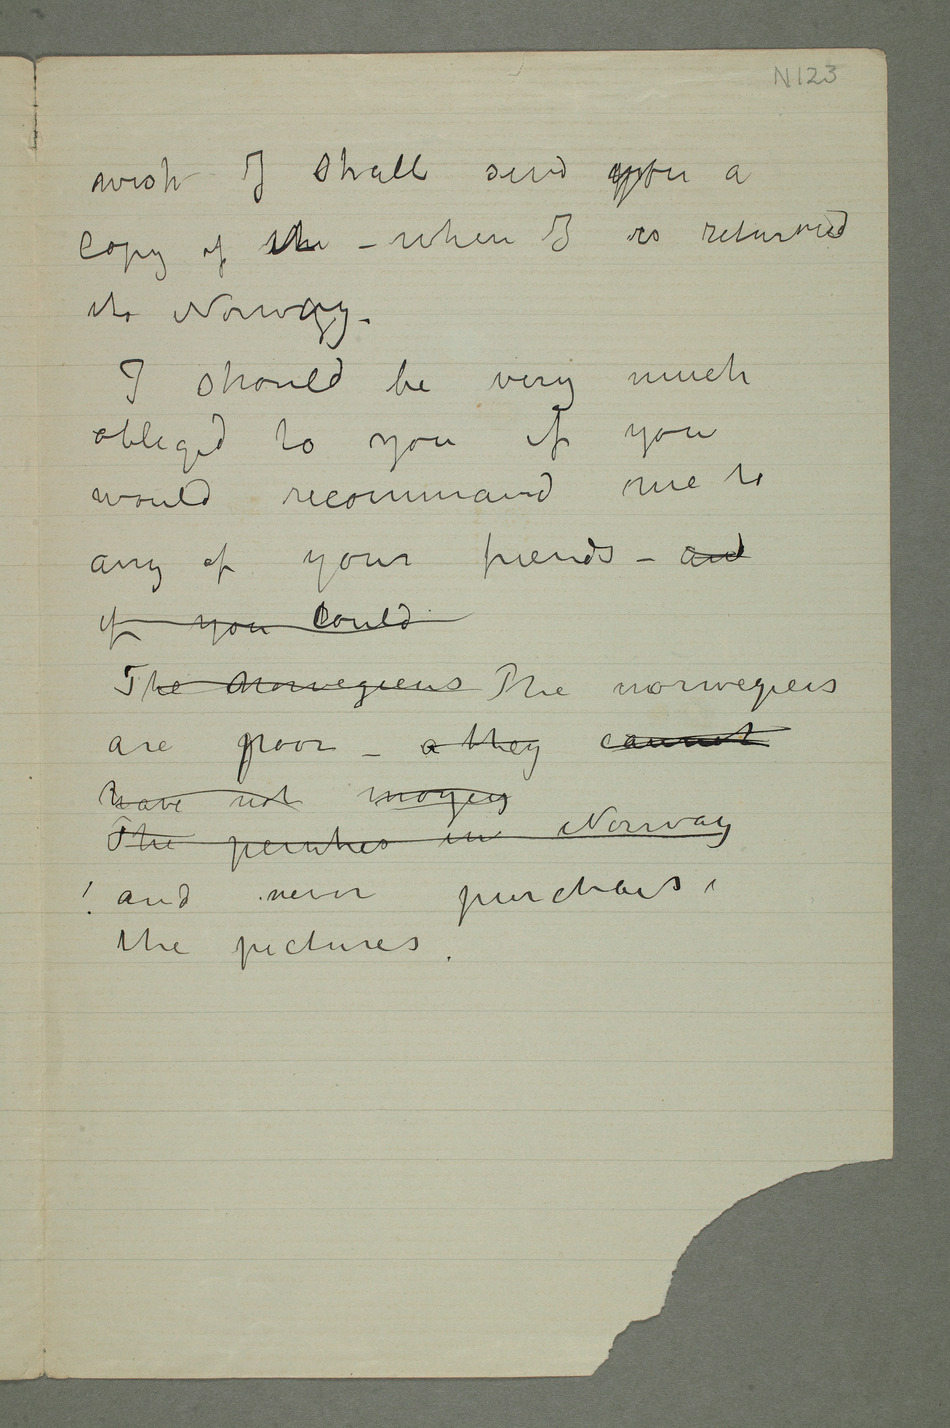 N 123
wish I shall send you a
copy of the – when I is returned
to Norway.
I should be very much
obliged to you if you
would recommand me to
any of your friends – and
if you could
The Norwegiens The norwegiens
are poor – a they cannot
have not
The in Norway
! and never purchais
the pictures.